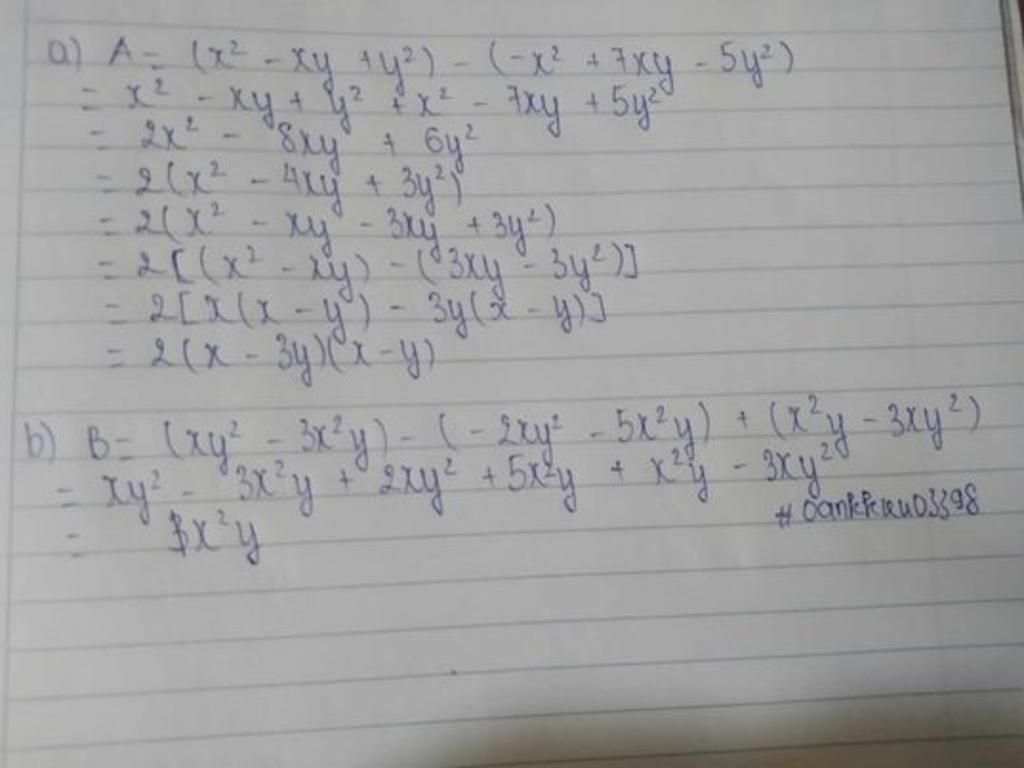 a) A = (x² - xy + y²) - (-x² + 7xy - 5y²)
= x² - xy + y² + x² - 7xy + 5y²
= 2x² - 8xy + 6y²
= 2(x² - 4xy + 3y²)
= 2(x² - xy - 3xy + 3y²)
= 2[(x² - xy) - (3xy - 3y²)]
= 2[x(x - y) - 3y(x - y)]
= 2(x - 3y)(x - y)
b) B = (xy² - 3x²y) - (-2xy² - 5x²y) + (x²y - 3xy²)
= xy² - 3x²y + 2xy² + 5x²y + x²y - 3xy²
= 3x²y